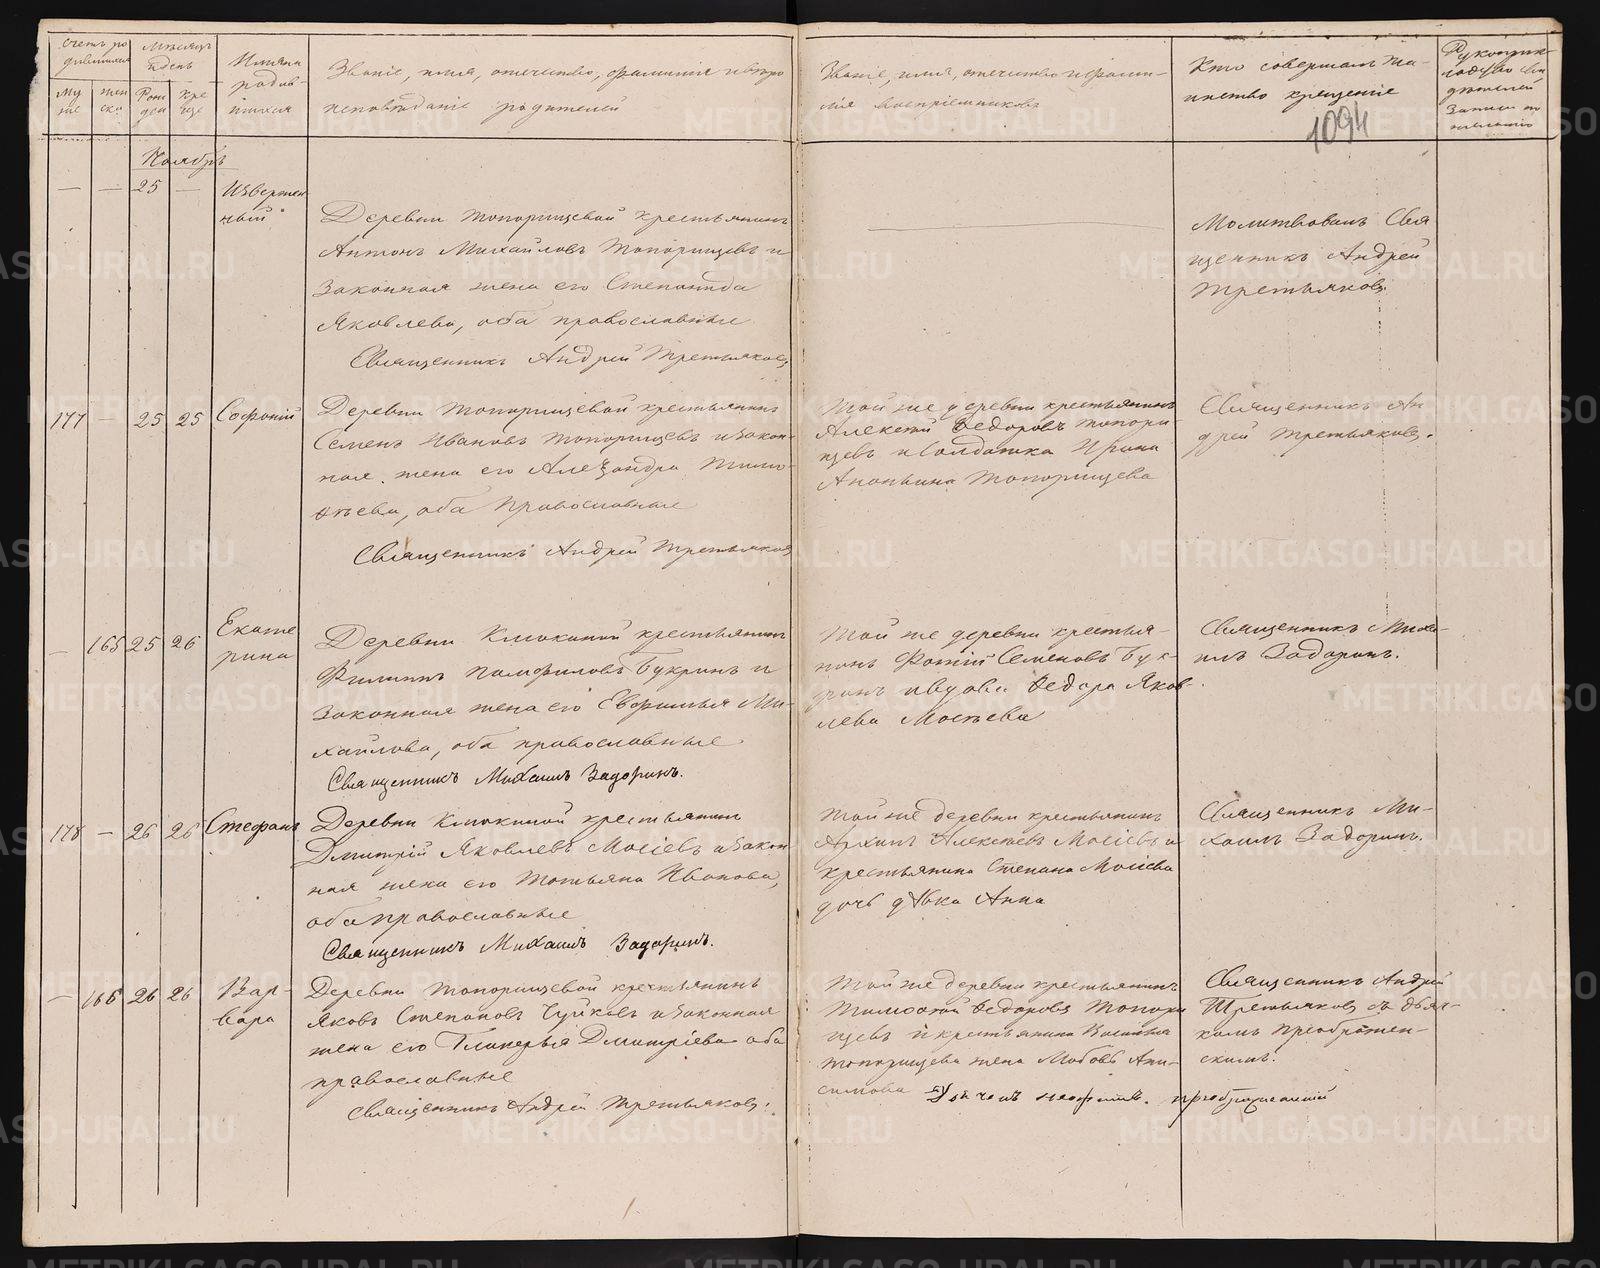 Счетъ ро
дившихся
Мѣсяцъ
и день
Имяна
родив-
шихся
Званіе, имя, отчество, фамилія и вѣро
исповѣданіе родителей
Званіе, имя, отчество и фами-
лія воспріемниковъ
Кто совершалъ та-
инство крещенія
Рукоприк-
ладство сви
дѣтелей
записи по
желанію
Му
же
жен
ска
Рож
ден
Кре
ще
1094
Ноябрь
— — 25 —
Извержен
ный
Деревни Топорищевой крестьянинъ
Антонъ Михайловъ Топорищевъ и
законная жена его Степанида
Яковлева, оба православные
Священникъ Андрей Третьяковъ
Молитвовалъ Свя
щенникъ Андрей
Третьяковъ
177 — 25 25 Софоній
Деревни Топорищевой крестьянинъ
Семенъ Ивановъ Топорищевъ и закон-
ная жена его Александра Тимо-
ѳеева, оба православные
Священникъ Андрей Третьяковъ
Той же деревни крестьянинъ
Алексѣй Ѳедоровъ Топори-
щевъ и солдатка Ирина
Ананьина Топорищева
Священникъ Ан
дрей Третьяковъ.
— 165 25 26 Екате
рина
Деревни Клюкиной крестьянинъ
Филиппъ Памфиловъ Букринъ и
законная жена его Евфимья Ми-
хайлова, оба православные
Священникъ Михаилъ Задоринъ.
Той же деревни крестья-
нинъ Фотій Семеновъ Бук-
ринъ и вдова Ѳедора Яков-
лева Мосѣева
Священникъ Миха-
илъ Задоринъ.
178 — 26 26 Стефанъ
Деревни Клюкиной крестьянинъ
Дмитрій Яковлевъ Мосіевъ и закон
ная жена его Татьяна Иванова,
оба православные
Священникъ Михаилъ Задоринъ.
Той же деревни крестьянинъ
Архипъ Алексѣевъ Мосіевъ и
крестьянина Степана Мосіева
дочь дѣвка Анна
Священникъ Ми-
хаилъ Задоринъ.
— 166 26 26 Вар-
вара
Деревни Топорищевой крестьянинъ
Яковъ Степановъ Чуйковъ и законная
жена его Гликерья Дмитріева оба
православные
Священникъ Андрей Третьяковъ.
Той же деревни крестьянинъ
Тимофей Ѳедоровъ Топори
щевъ и крестьянина Василья
Топорищева жена Любовь Ани-
симова
Дьячекъ Преображенскій
Священникъ Андрей
Третьяковъ съ дьяч-
комъ Преображен-
скимъ.
METRIKI.GASO-URAL.RU